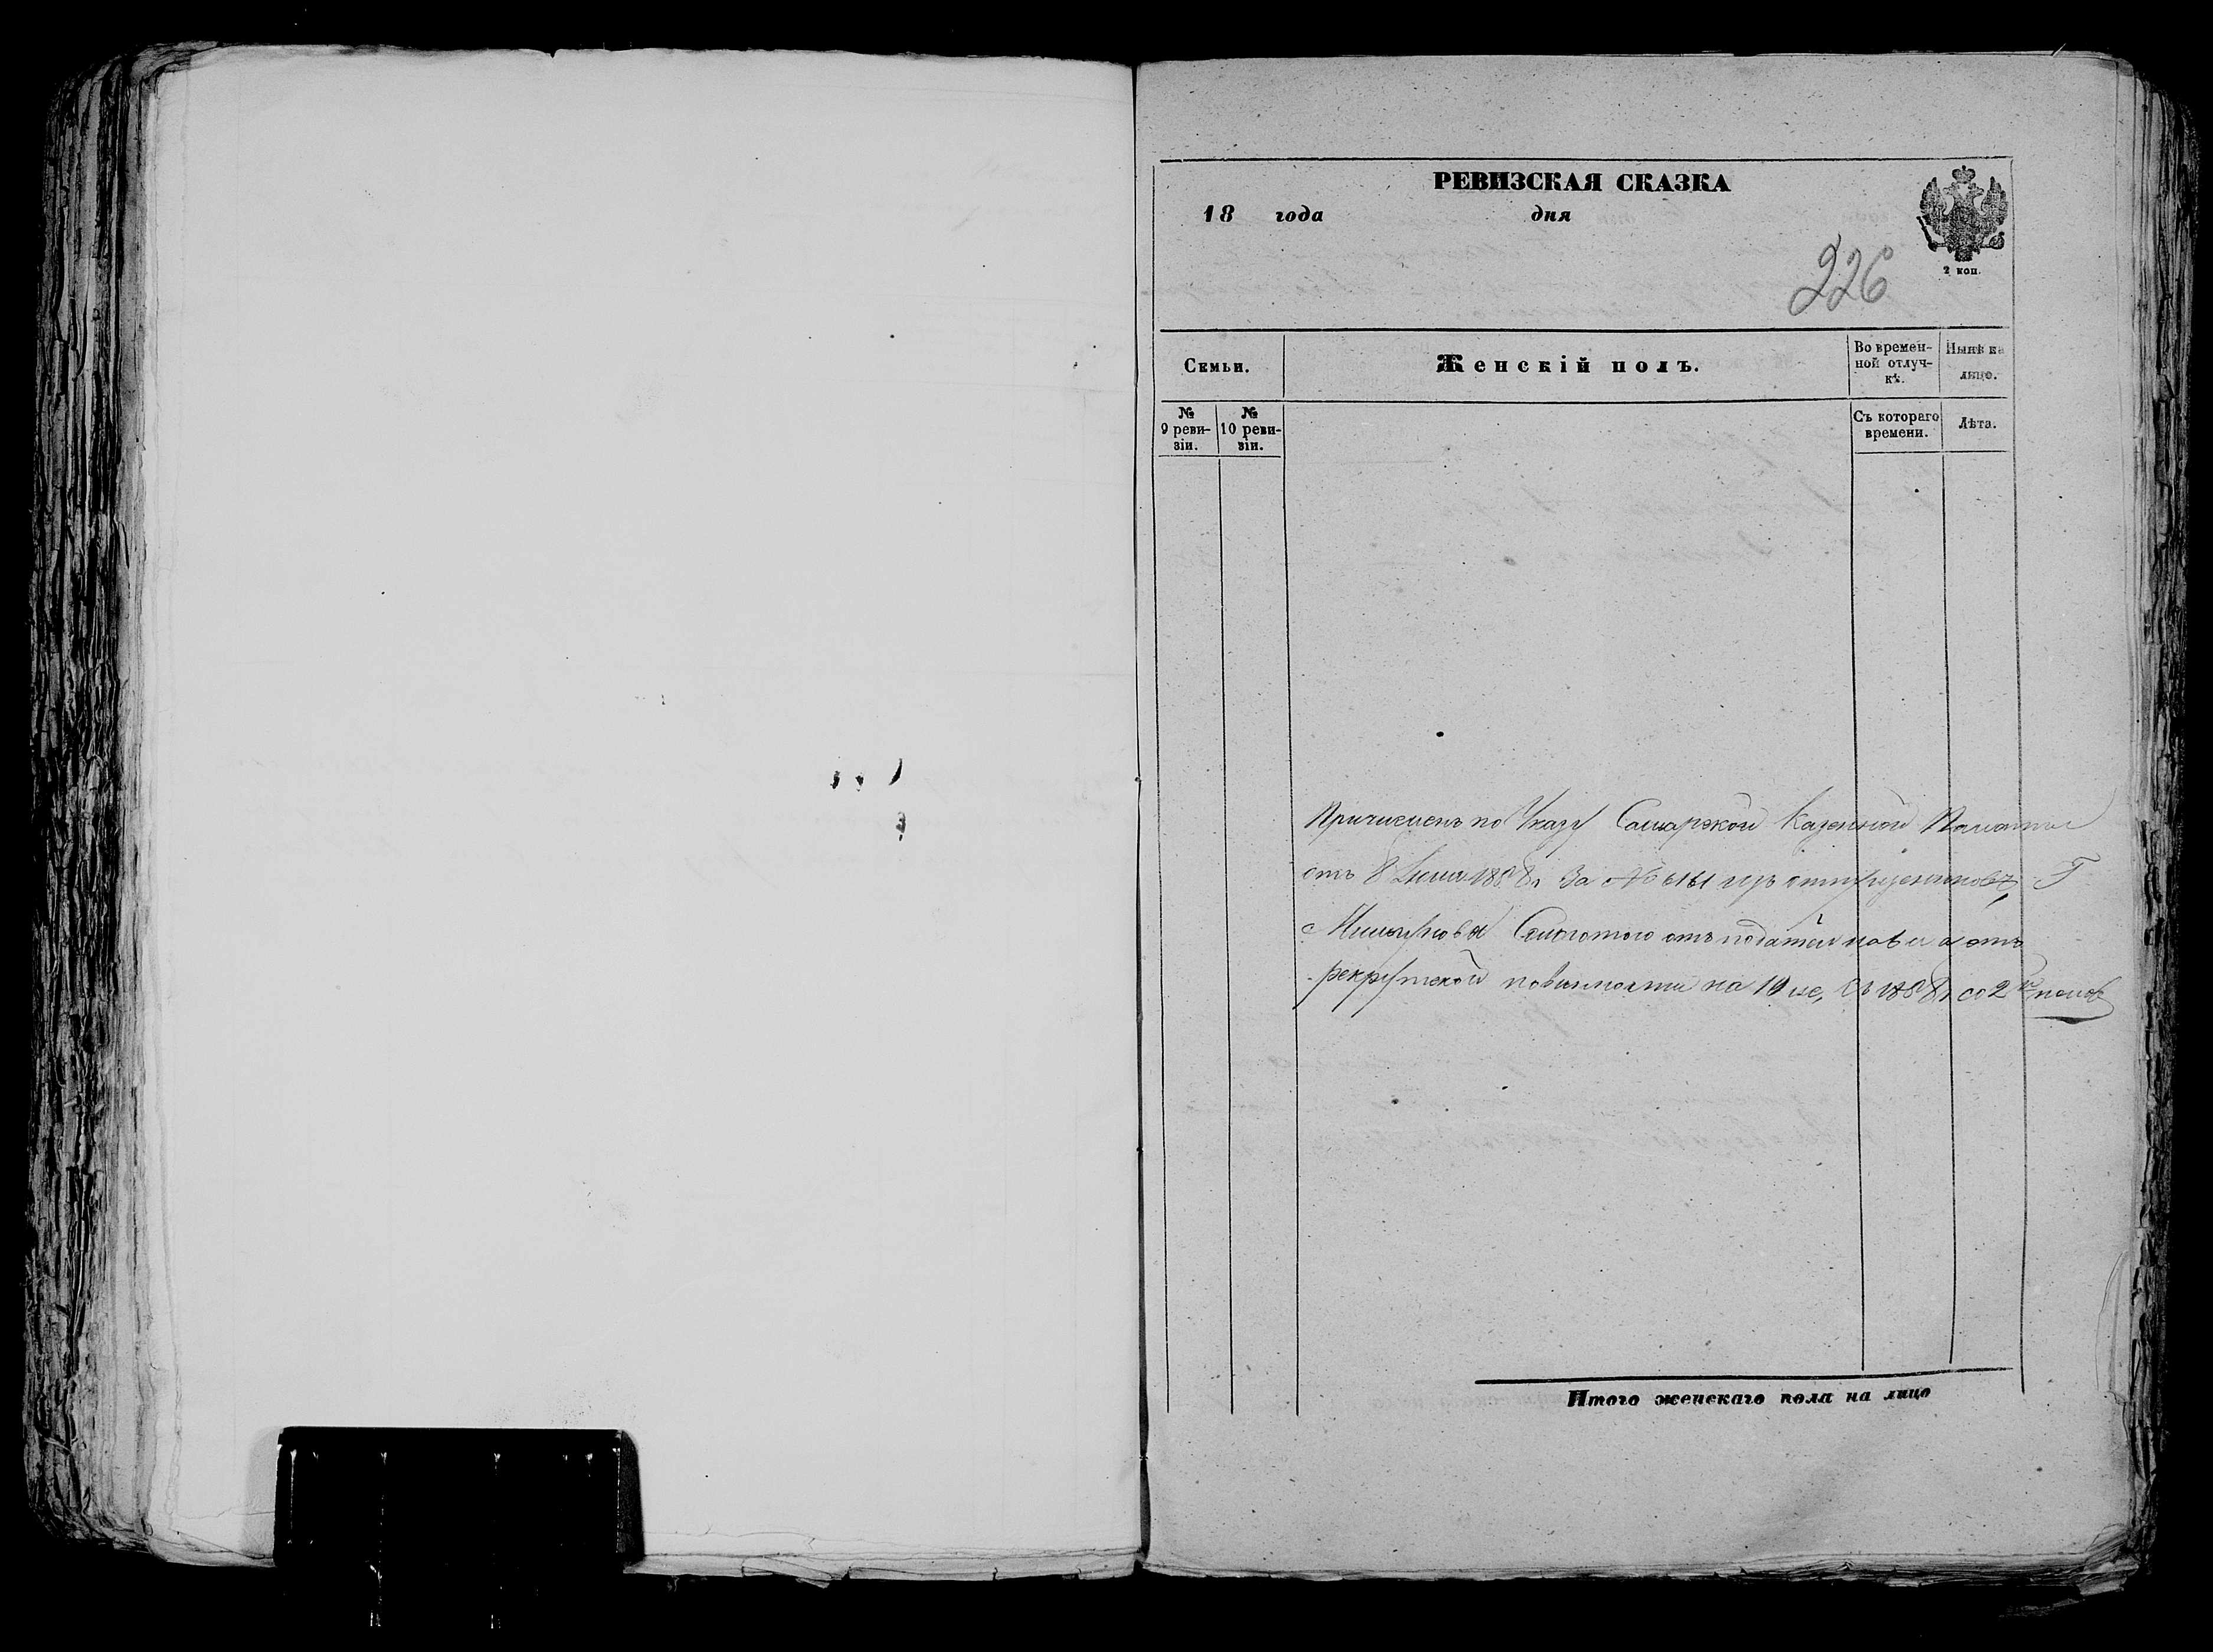 РЕВИЗСКАЯ СКАЗКА
18 года дня
2 коп.
226
Семьи. Женскій полъ. Во времен-ной отлуч-кѣ. Нынѣ на лицо.
№ 9 реви-зіи. № 10 реви-зіи. Съ котораго времени. Лѣта.
Причисленъ по Указу Самарской Казенной Палаты
отъ 8 1858 г За № изъ
отъ податей а отъ
рекрутской повинности на 10 съ 1858 г со 2й полов
Итого женскаго пола на лицо